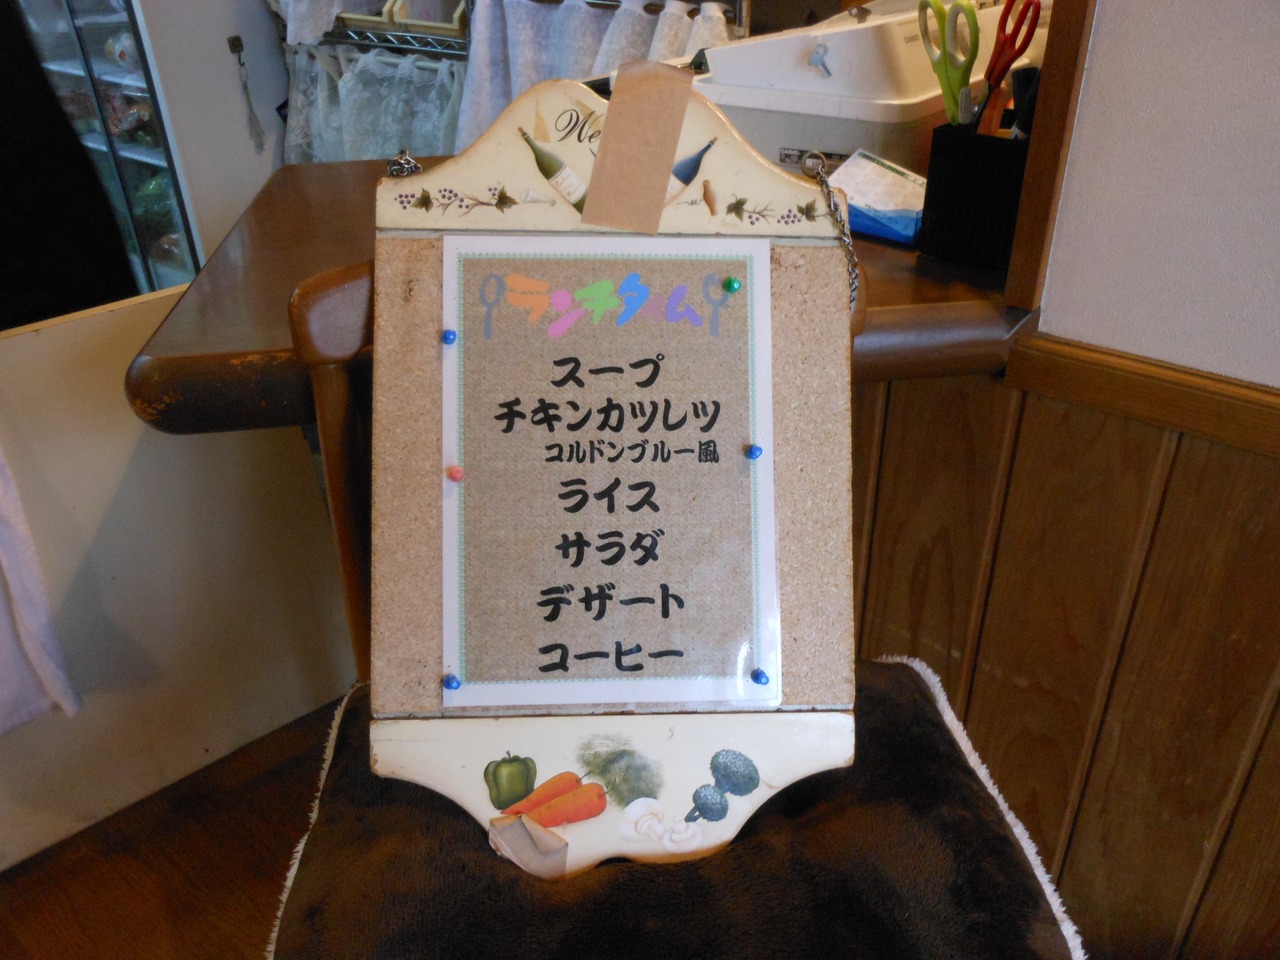 We
ランチタイム
スープ
チキンカツレツ
コルドンブルー風
ライス
サラダ
デザート
コーヒー
CASIO